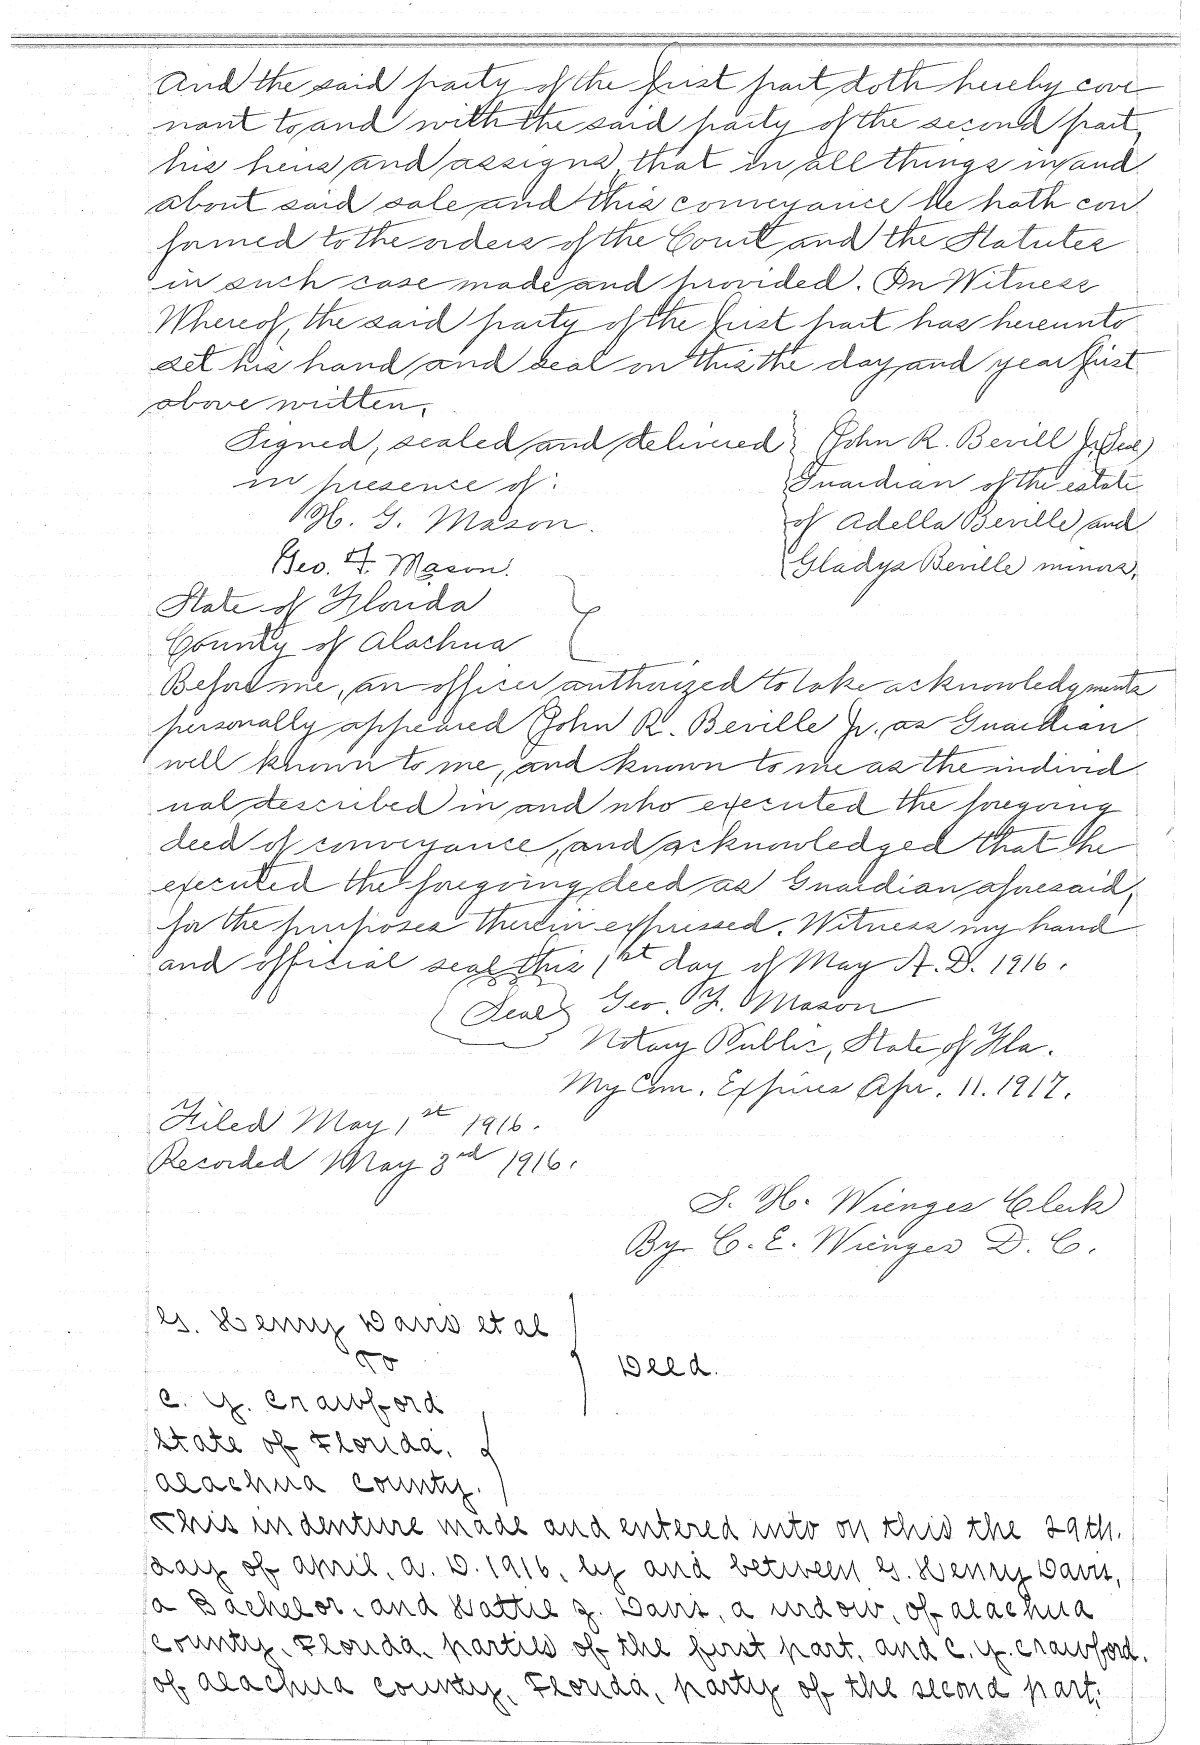 And the said party of the first part doth hereby cove
nant to and with the said party of the second part,
his heirs and assigns, that in all things in and
about said sale and this conveyance he hath con
formed to the orders of the Court and the Statutes
in such case made and provided. In Witness
Whereof, the said party of the first part has hereunto
set his hand and seal on this the day and year first
above written.
Signed, sealed and delivered John R. Bevill Jr. (Seal)
in presence of: Guardian of the estate
H. G. Mason. of Adella Beville and
Geo. F. Mason. Gladys Beville minors.
State of Florida
County of Alachua
Before me, an officer authorized to take acknowledgments
personally appeared John R. Beville Jr. as Guardian
well known to me, and known to me as the individ
ual described in and who executed the foregoing
deed of conveyance, and acknowledged that he
executed the foregoing deed as Guardian aforesaid,
for the purposes therein expressed. Witness my hand
and official seal this 1st day of May A. D. 1916.
(Seal) Geo. F. Mason
Notary Public, State of Fla.
My Com. Expires Apr. 11. 1917.
Filed May 1st 1916.
Recorded May 3rd 1916.
S. H. Wienges Clerk
By C. E. Wienges D. C.
G. Henry Davis et al
To
Deed.
C. Y. Crawford
State of Florida,
Alachua County.
This indenture made and entered into on this the 29th.
day of April, A. D. 1916, by and between G. Henry Davis,
a Bachelor, and Hattie J. Davis, a widow, of Alachua
County, Florida, parties of the first part, and C. Y. Crawford,
of Alachua County, Florida, party of the second part;